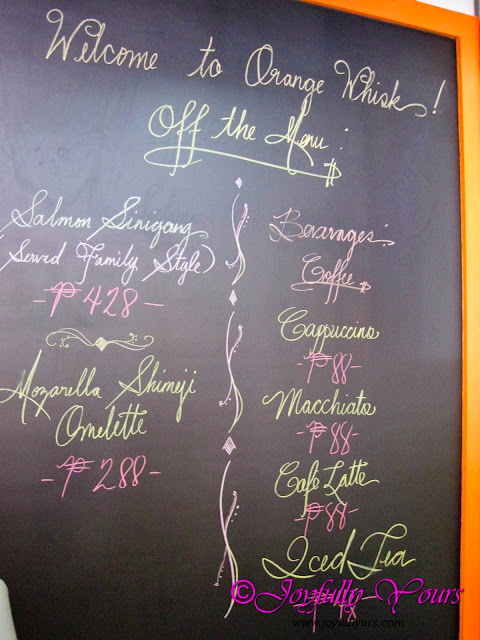 Welcome to Orange Whisk!
Off the Menu:
Salmon Sinigang
(Served Family Style)
-₱428-
Mozarella Shimeji
Omelette
-₱288-
Beverages:
Coffee
Cappuccino
-₱88-
Macchiato
-₱88-
Café Latte
-₱88-
Iced Tea
©Joyfully Yours
www.joyfullyurs.com